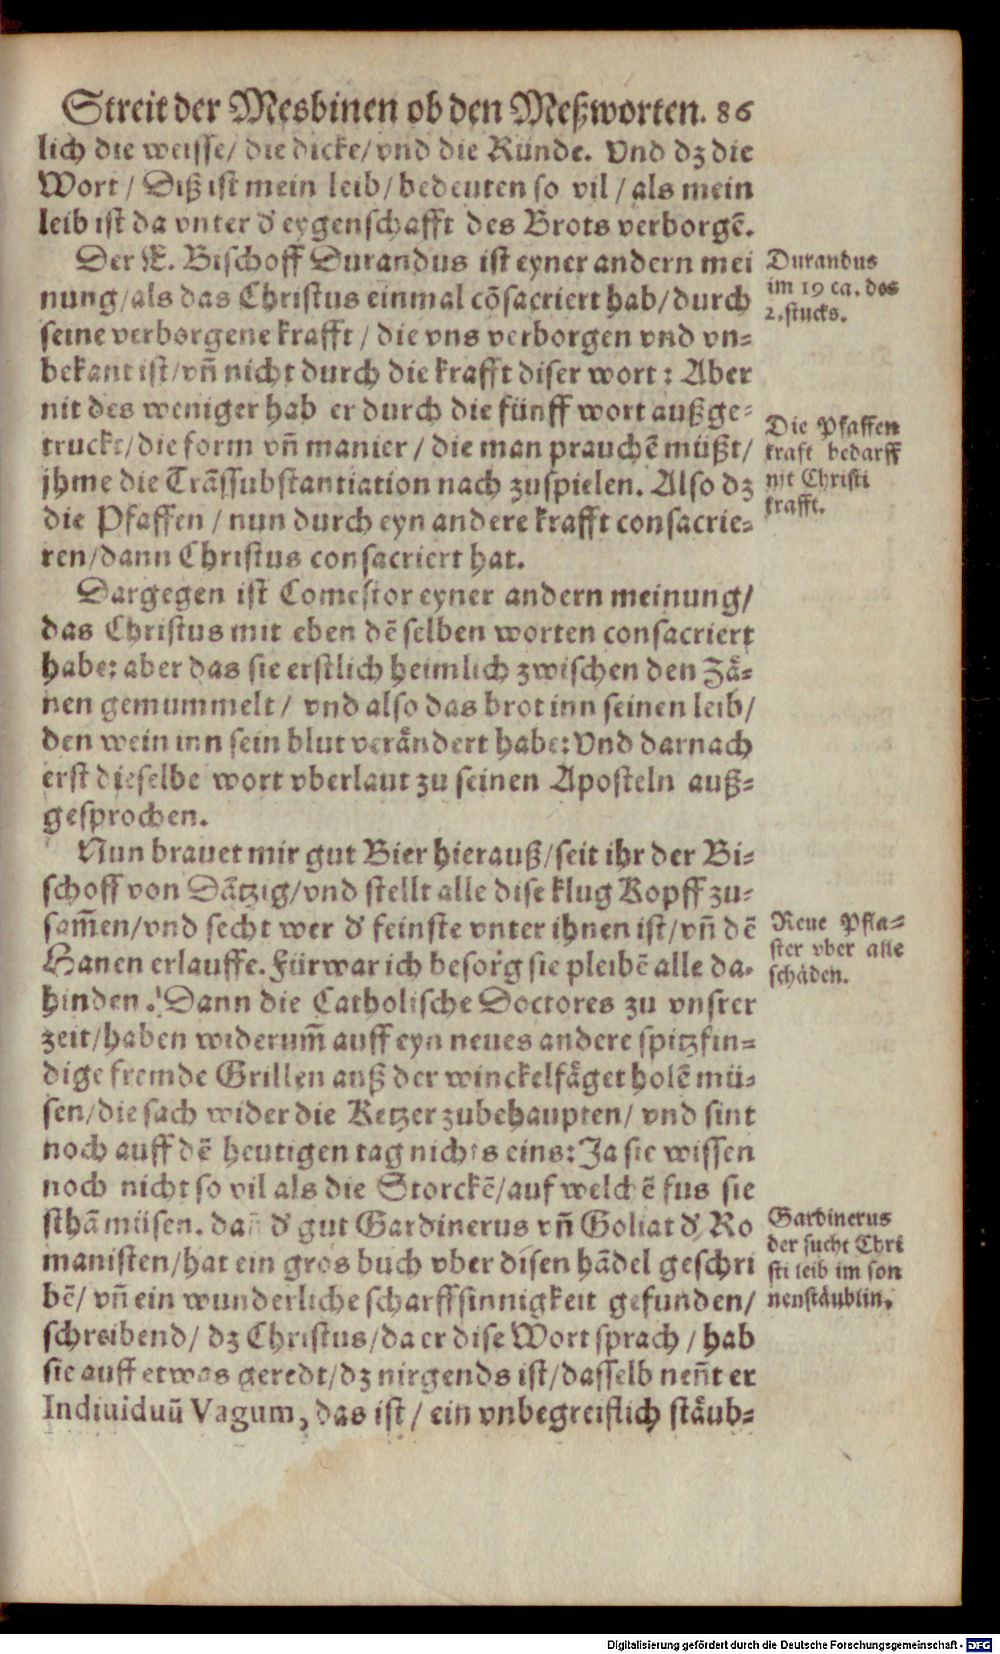 Streit der Mesbinen ob den Meßworten. 86
lich die weisse/ die dicke/ vnd die Ründe. Vnd dz die
Wort / Diß ist mein leib/ bedeuten so vil / als mein
leib ist da vnter d' eygenschafft des Brots verborgē.
Der E. Bischoff Durandus ist eyner andern mei
nung/als das Christus einmal cōsacriert hab/ durch
seine verborgene krafft / die vns verborgen vnd vn=
bekant ist/ vñ nicht durch die krafft diser wort : Aber
nit des weniger hab er durch die fünff wort außge=
truckt/ die form vñ manier / die man prauchē müßt/
jhme die Trāssubstantiation nach zuspielen. Also dz
die Pfaffen / nun durch eyn andere krafft consacrie=
ren/dann Christus consacriert hat.
Durandus
im 19 ca. des
2. stucks.
Die Pfaffen
kraft bedarff
nit Christi
krafft.
Dargegen ist Comestor eyner andern meinung/
das Christus mit eben dē selben worten consacriert
habe: aber das sie erstlich heimlich zwischen den Zä=
nen gemummelt / vnd also das brot inn seinen leib/
den wein inn sein blut verändert habe: Vnd darnach
erst dieselbe wort vberlaut zu seinen Aposteln auß=
gesprochen.
Nun brauet mir gut Bier hierauß/ seit ihr der Bi=
schoff von Dātzig/ vnd stellt alle dise klug Kopff zu=
sam̄en/vnd secht wer d' feinste vnter ihnen ist/ vñ dē
Hanen erlauffe. Fürwar ich besorg sie pleibē alle da=
hinden. Dann die Catholische Doctores zu vnsrer
zeit/ haben widerum̄ auff eyn neues andere spitzfin=
dige fremde Grillen auß der winckelfäget holē mü=
sen/ die sach wider die Ketzer zubehaupten/ vnd sint
noch auff dē heutigen tag nichts eins: Ja sie wissen
noch nicht so vil als die Storckē/ auf welchē fus sie
sthā müsen. dañ d' gut Gardinerus vñ Goliat d' Ro
manisten/ hat ein gros buch vber disen hādel geschri
bē/ vñ ein wunderliche scharffsinnigkeit gefunden/
schreibend/ dz Christus/ da er dise Wort sprach / hab
sie auff etwas geredt/ dz nirgends ist/ dasselb neñt er
Indiuiduū Vagum, das ist / ein vnbegreiflich stäub=
Neue Pfla=
ster vber alle
schäden.
Gardinerus
der sucht Chri
sti leib im son
nenstäublin.
Digitalisierung gefördert durch die Deutsche Forschungsgemeinschaft - DFG